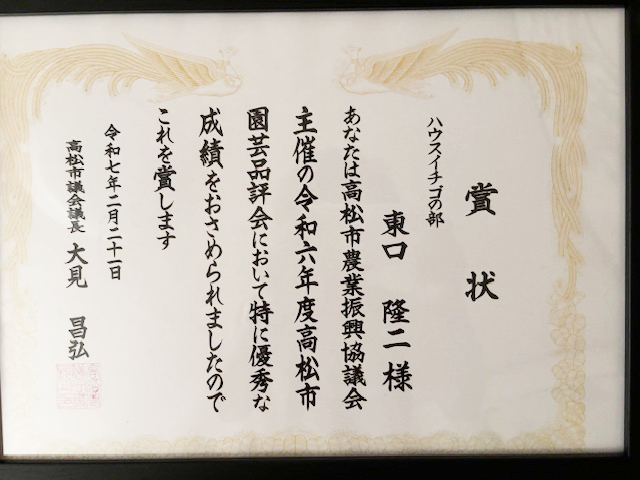 賞状
ハウスイチゴの部
東口 隆二 様
あなたは高松市農業振興協議会
主催の令和六年度高松市
園芸品評会において特に優秀な
成績をおさめられましたので
これを賞します
令和七年二月二十一日
高松市議会議長 大見 昌弘